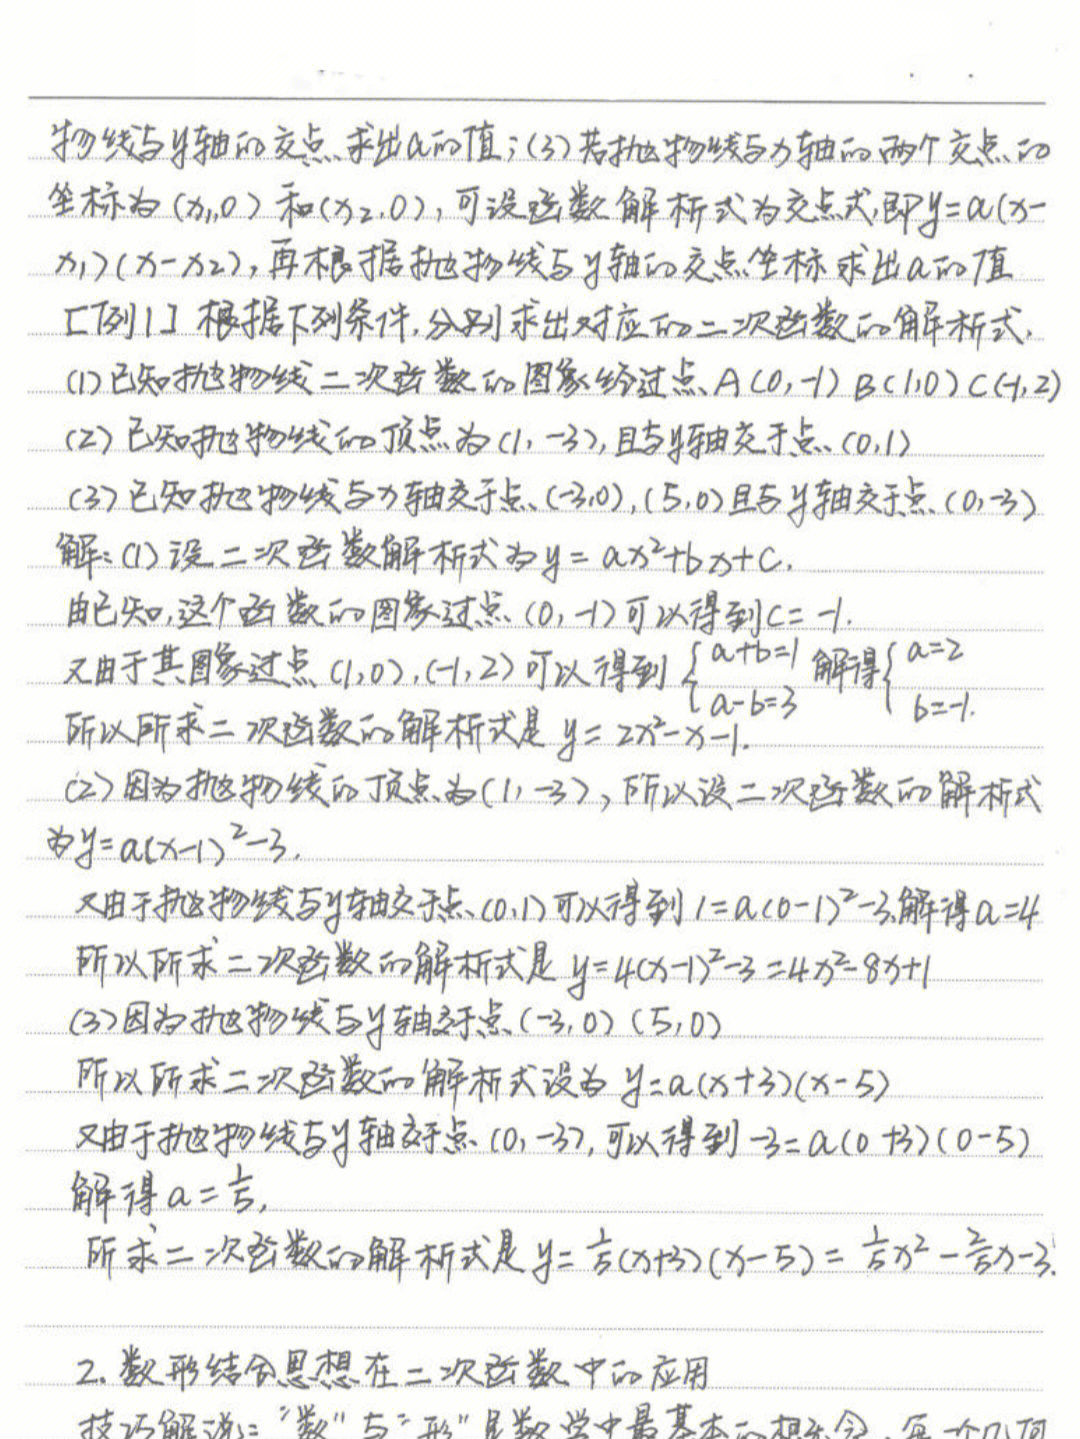 物线与y轴的交点求出a的值;(3)若抛物线与x轴的两个交点的
坐标为(x₁,0)和(x₂,0),可设函数解析式为交点式,即y=a(x-
x₁)(x-x₂),再根据抛物线与y轴的交点坐标求出a的值
[例1]根据下列条件,分别求出对应的二次函数的解析式.
(1)已知抛物线二次函数的图象经过点A(0,-1)B(1,0)C(-1,2)
(2)已知抛物线的顶点为(1,-3),且与y轴交于点(0,1)
(3)已知抛物线与x轴交于点(-3,0),(5,0)且与y轴交于点(0,-3)
解:(1)设二次函数解析式为y=ax²+bx+c.
由已知,这个函数的图象过点(0,-1)可以得到c=-1.
又由于其图象过点(1,0),(-1,2)可以得到{a+b=1 a-b=3 解得{a=2 b=-1.
所以所求二次函数的解析式是y=2x²-x-1.
(2)因为抛物线的顶点为(1,-3),所以设二次函数的解析式
为y=a(x-1)²-3.
又由于抛物线与y轴交于点(0,1)可以得到1=a(0-1)²-3.解得a=4
所以所求二次函数的解析式是y=4(x-1)²-3=4x²-8x+1
(3)因为抛物线与y轴交于点(-3,0)(5,0)
所以所求二次函数的解析式设为y=a(x+3)(x-5)
又由于抛物线与y轴交于点(0,-3),可以得到-3=a(0+3)(0-5)
解得a=1/5,
所求二次函数的解析式是y=1/5(x+3)(x-5)=1/5x²-2/5x-3.
2.数形结合思想在二次函数中的应用
技巧解说:"数"与"形"是数学中最基本的概念,每一个几何